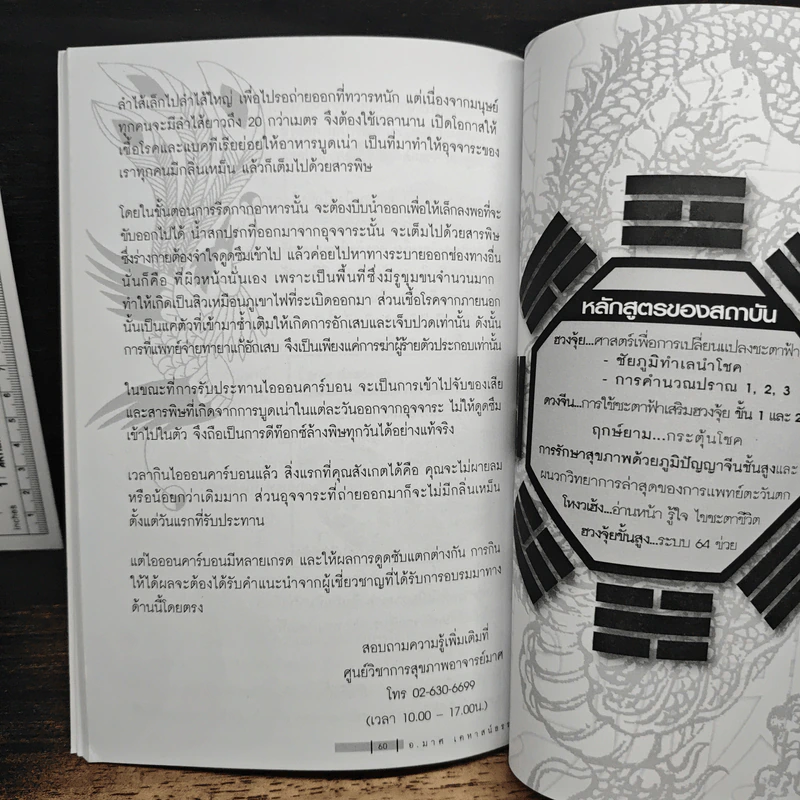 ลำไส้เล็กไปลำไส้ใหญ่ เพื่อไปรอถ่ายออกที่ทวารหนัก แต่เนื่องจากมนุษย์
ทุกคนจะมีลำไส้ยาวถึง 20 กว่าเมตร จึงต้องใช้เวลานาน เปิดโอกาสให้
เชื้อโรคและแบคทีเรียย่อยให้อาหารบูดเน่า เป็นที่มาทำให้อุจจาระของ
เราทุกคนมีกลิ่นเหม็น แล้วก็เต็มไปด้วยสารพิษ
โดยในขั้นตอนการรีดกากอาหารนั้น จะต้องบีบน้ำออกเพื่อให้เล็กลงพอที่จะ
ขับออกไปได้ น้ำสกปรกที่ออกมาจากอุจจาระนั้น จะเต็มไปด้วยสารพิษ
ซึ่งร่างกายต้องจำใจดูดซึมเข้าไป แล้วค่อยไปหาทางระบายออกช่องทางอื่น
นั่นก็คือ ที่ผิวหน้านั่นเอง เพราะเป็นพื้นที่ซึ่งมีรูขุมขนจำนวนมาก
ทำให้เกิดเป็นสิวเหมือนภูเขาไฟที่ระเบิดออกมา ส่วนเชื้อโรคจากภายนอก
นั้นเป็นแค่ตัวที่เข้ามาซ้ำเติมให้เกิดการอักเสบและเจ็บปวดเท่านั้น ดังนั้น
การที่แพทย์จ่ายทายาแก้อักเสบ จึงเป็นเพียงแค่การฆ่าผู้ร้ายตัวประกอบเท่านั้น
ในขณะที่การรับประทานไอออนคาร์บอน จะเป็นการเข้าไปจับของเสีย
และสารพิษที่เกิดจากการบูดเน่าในแต่ละวันออกจากอุจจาระ ไม่ให้ดูดซึม
เข้าไปในตัว จึงถือเป็นการดีท๊อกซ์ล้างพิษทุกวันได้อย่างแท้จริง
เวลากินไอออนคาร์บอนแล้ว สิ่งแรกที่คุณสังเกตได้คือ คุณจะไม่ผายลม
หรือน้อยกว่าเดิมมาก ส่วนอุจจาระที่ถ่ายออกมาก็จะไม่มีกลิ่นเหม็น
ตั้งแต่วันแรกที่รับประทาน
แต่ไอออนคาร์บอนมีหลายเกรด และให้ผลการดูดซับแตกต่างกัน การกิน
ให้ได้ผลจะต้องได้รับคำแนะนำจากผู้เชี่ยวชาญที่ได้รับการอบรมมาทาง
ด้านนี้โดยตรง
สอบถามความรู้เพิ่มเติมที่
ศูนย์วิชาการสุขภาพอาจารย์มาศ
โทร 02-630-6699
(เวลา 10.00 – 17.00น.)
60 อ.มาศ
หลักสูตรของสถาบัน
ฮวงจุ้ย...ศาสตร์เพื่อการเปลี่ยนแปลงชะตาฟ้า
- ชัยภูมิทำเลนำโชค
- การคำนวณปราณ 1, 2, 3
ดวงจีน...การใช้ชะตาฟ้าเสริมฮวงจุ้ย ชั้น 1 และ 2
ฤกษ์ยาม...กระตุ้นโชค
การรักษาสุขภาพด้วยภูมิปัญญาจีนชั้นสูงและ
ผนวกวิทยาการล่าสุดของการแพทย์ตะวันตก
โหงวเฮ้ง...อ่านหน้า รู้ใจ ไขชะตาชีวิต
ฮวงจุ้ยขั้นสูง...ระบบ 64 ข่วย
inches 1